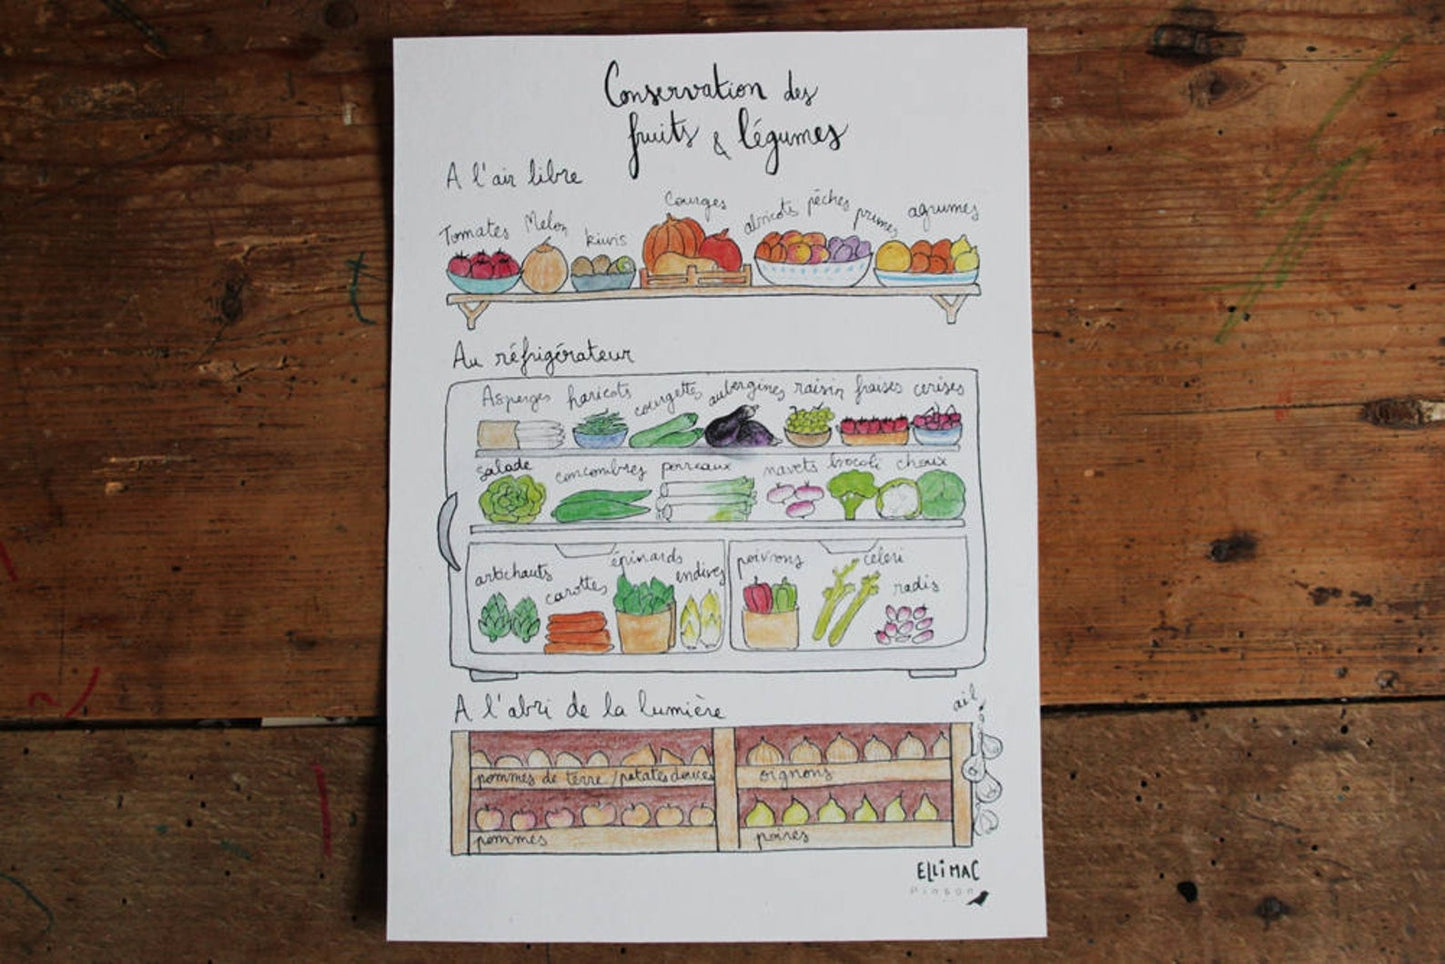 Conservation des
fruits & légumes
A l'air libre
Tomates Melon kiwis Courges abricots pêches prunes agrumes
Au réfrigérateur
Asperges haricots courgettes aubergines raisin fraises cerises
salade concombres poireaux navets brocoli choux
artichauts carottes épinards endives poivrons céleri radis
A l'abri de la lumière
ail
pommes de terre / patates douces oignons
pommes poires
ELLiMAC
Pinson